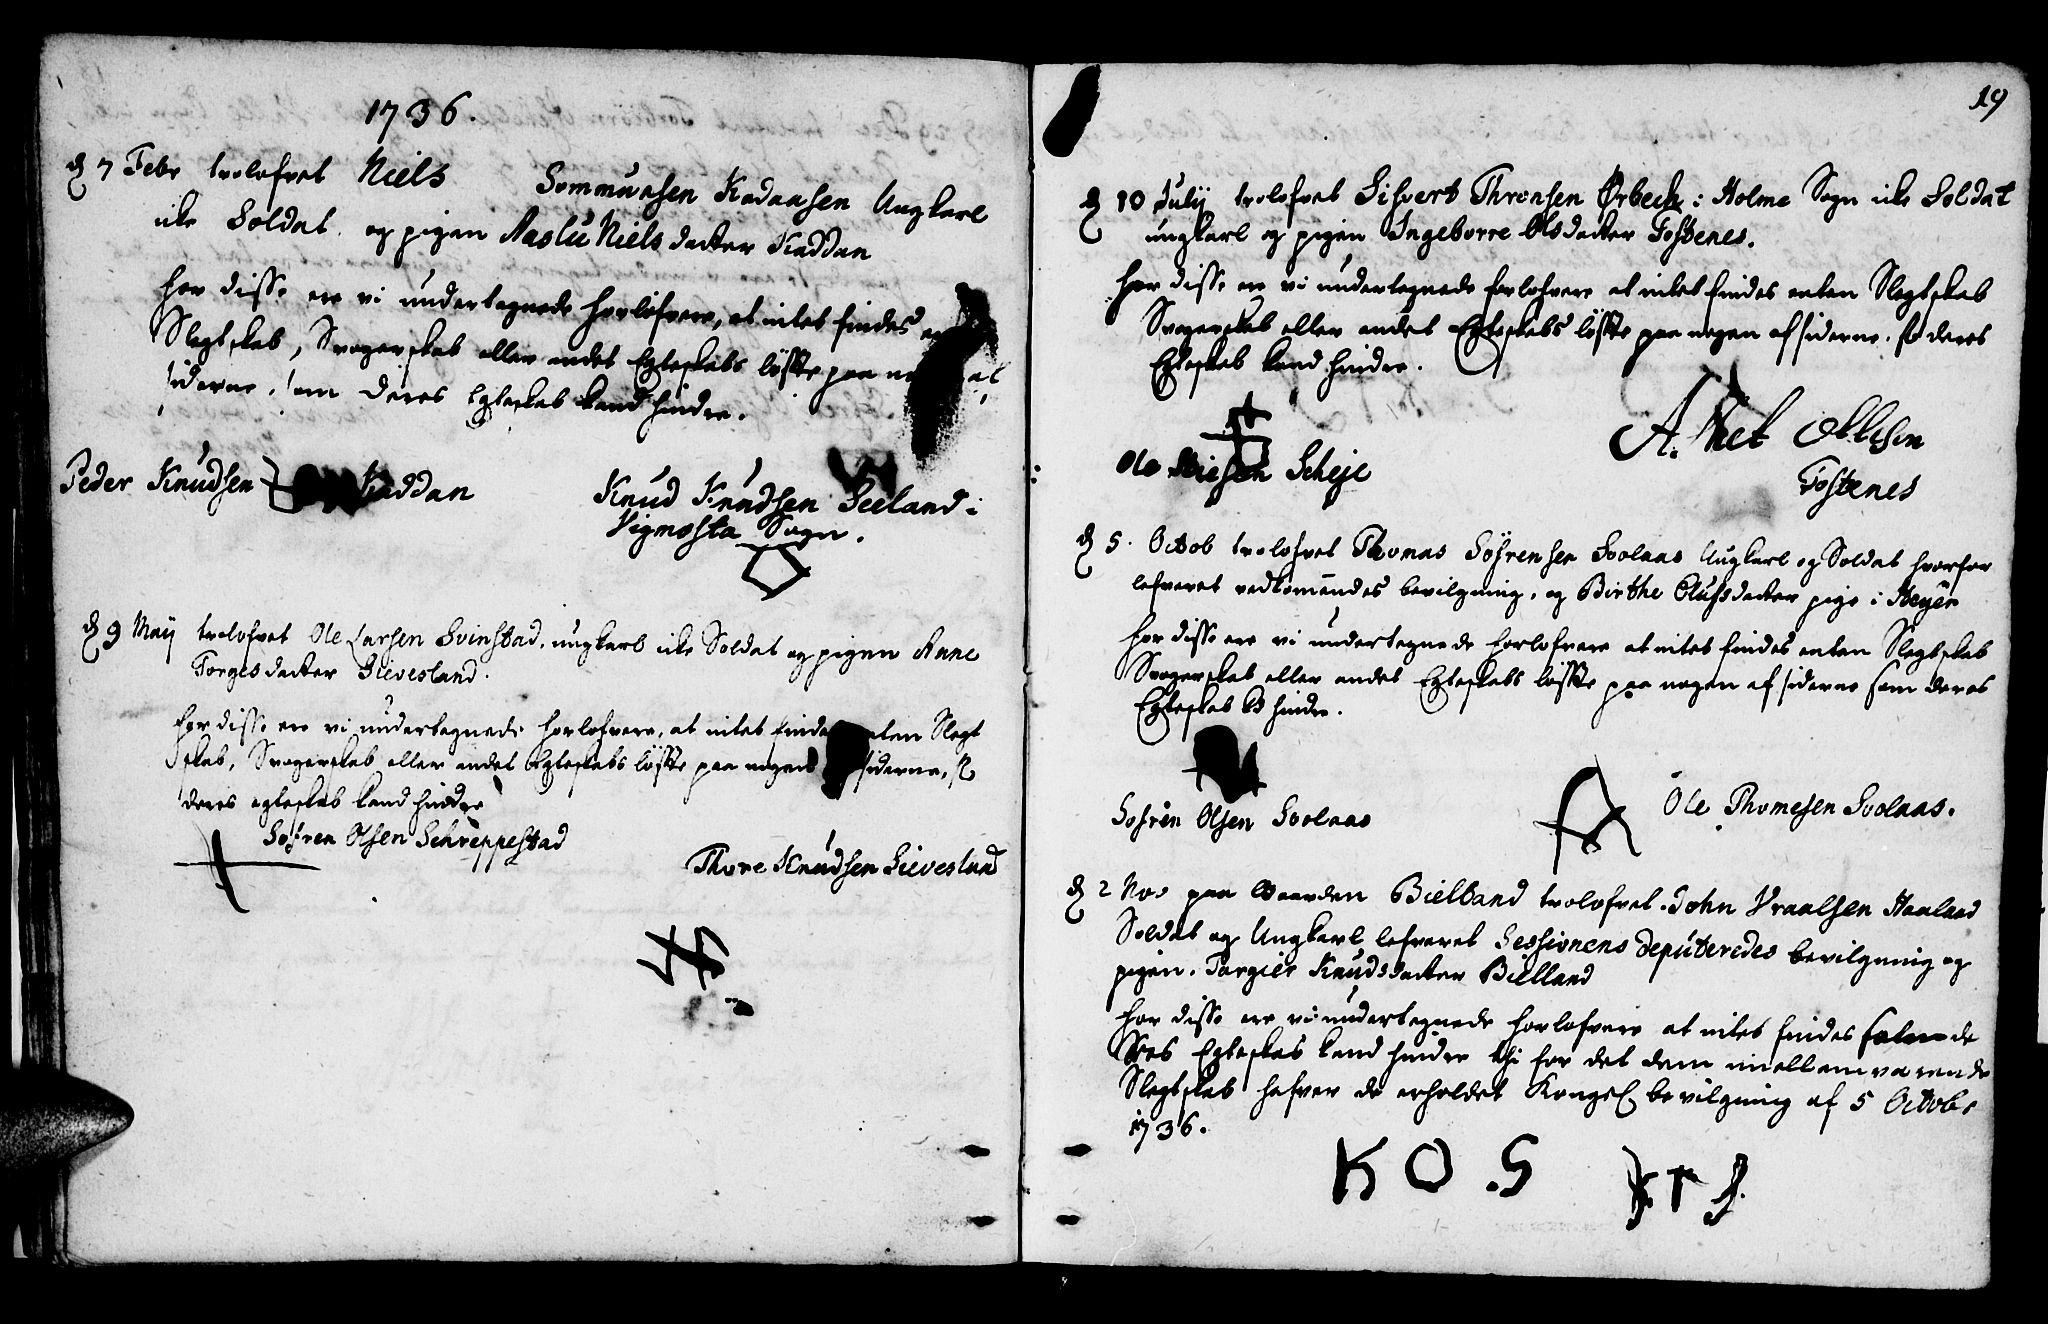 1736.
d 7 Febr trolofvet Niels Sommuelsen Kadaasen Ungkarl
icke Soldat. og pigen Aaslu Nielsdatter Kaddan
For disse ere vi undertegnede forlofvere, at intet findes
Slegtskab, Svogerskab eller andet Egteskabs löffte paa
siderne, som Deres Egteskab kand hindre.
Peder Knudsen Kaddan
Knud Knudsen Seeland i
Vigmosta Sogn.
d 9 Maij trolofvet Ole Larsen Svinstad, ungkarl icke Soldat og pigen Anne
Torgesdatter Sievesland.
For disse ere vi undertegnede forlofvere, at intet finde enten Slegt
skab, Svogerskab eller andet Egteskabs löffte paa nogen siderne,
deres egteskab kand hindre
Söfren Olsen Schreppestad
Thore Knudsen Sievesland
19
d 10 Julij trolofvet Sifvert Thronsen Örbeck i Holme Sogn icke Soldat
ungkarl og pigen Ingeborre Olsdatter Fostenes.
For disse ere vi undertegnede forlofvere at intet findes enten Slegtskab
Svogerskab eller andet Egteskabs löffte paa nogen af siderne, deres
Egteskab kand hindre.
Ole Scheje
Ollesen
Fostenes
d 5. Octob trolofvet Thomas Söfrensen Svolaas Ungkarl og Soldat hvorfor
lefveret vedkommendes bevilgning, og Birthe Olufsdatter pige i Steyen
For disse ere vi undertegnede forlofvere at intet findes enten Slegtskab
Svogerskab eller andet Egteskabs löffte paa nogen af siderne som deres
Egteskab hindre.
Söfren Olsen Svolaas
Ole Thomesen Svolaas.
d 2 Nov paa Gaarden Bielland trolofvet John Vraalsen Haaland
Soldat og Ungkarl lefveret Sessionens deputeredes bevilgning og
pigen. Torgier Knudsdatter Bielland
For disse ere vi undertegnede forlofvere at intet findes
Egteskab kand hindre thi for det dem imellem varende
Slegtskab hafver de erholdet Kongel bevilgning af 5 Octobr
1736.
K O S
K T S